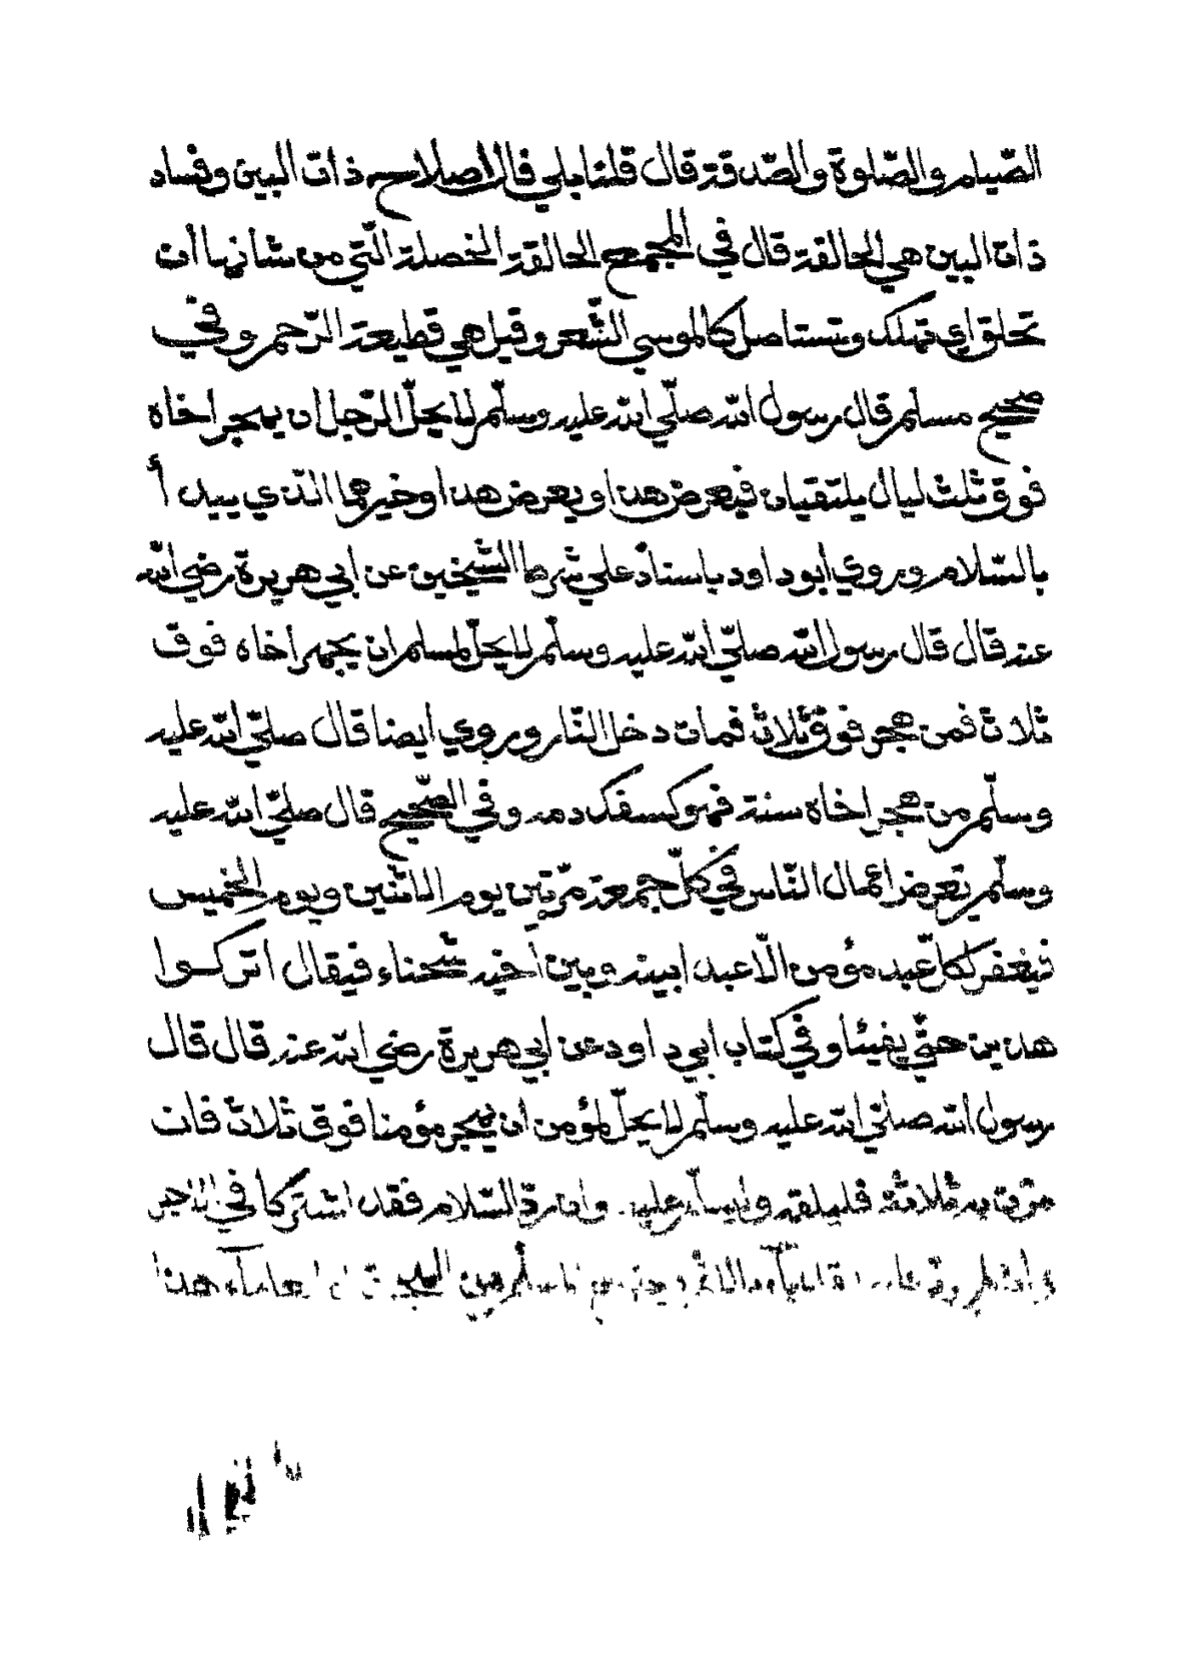 الصّيام والصّلوة والصّدقة قال قلنا بلي قال اصلاح ذات البين وفساد
ذات البين هي الحالقة قال في المجمع الحالقة الخصلة الّتي من شأنها أن
تحلق اي تهلك وتستاصل كالموسي الشّعر وقيل هي قطيعة الرّحم وفي
صحيح مسلم قال رسول الله صلّي الله عليه وسلّم لا يحلّ الرّجل ان يهجر اخاه
فوق ثلث ليال يلتقيان فيعرض هذا ويعرض هذا وخيرهما الّذي يبدأ
بالسّلام وروي أبو داود باسناد علي شرط الشّيخين عن ابي هريرة رضي الله
عنه قال قال رسول الله صلّي الله عليه وسلّم لا يحلّ لمسلم ان يهجر اخاه فوق
ثلاث فمن هجر فوق ثلاث فمات دخل النّار وروي ايضا قال صلّي الله عليه
وسلّم من هجر اخاه سنة فهو كسفك دمه وفي الصّحيح قال صلّي الله عليه
وسلّم تعرض اعمال النّاس في كلّ جمعة مرّتين يوم الاثنين ويوم الخميس
فيغفر لكلّ عبد مؤمن الّا عبدا بينه وبين أخيه شحناء فيقال اتركوا
هذين حتّي يفيئا وفي كتاب ابي داود عن ابي هريرة رضي الله عنه قال قال
رسول الله صلّي الله عليه وسلّم لا يحلّ لمؤمن أن يهجر مؤمنا فوق ثلاث فان
مرّت به ثلاثة فليلقه وليسلّم عليه وان ردّ السّلام فقد اشتركا في الاجر